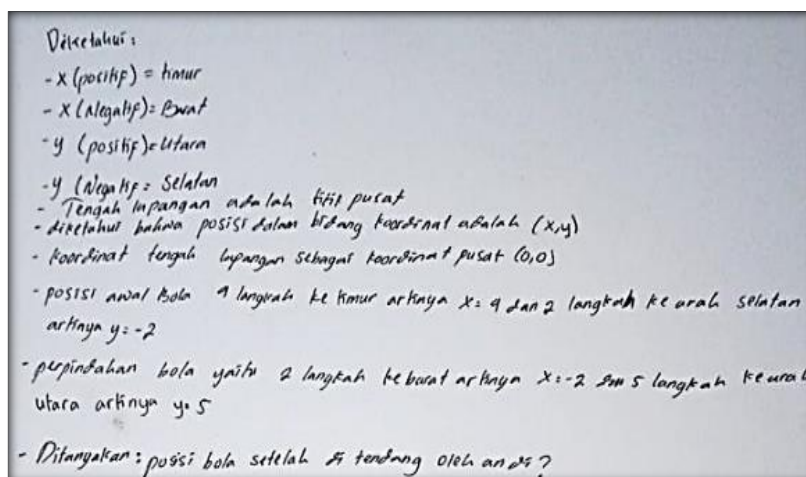 Diketahui:
- X (positif) = timur
- X (Negatif) = Barat
- y (positif) = Utara
- y (Negatif = Selatan
- Tengah lapangan adalah titik pusat
- diketahui bahwa posisi dalam bidang koordinat adalah (x,y)
- koordinat tengah lapangan sebagai koordinat pusat (0,0)
- posisi awal Bola 4 langkah ke timur artinya x = 4 dan 2 langkah ke arah selatan
artinya y = -2
- perpindahan bola yaitu 2 langkah ke barat artinya x = -2 dan 5 langkah ke arah
utara artinya y = 5
- Ditanyakan : posisi bola setelah di tendang oleh andi?